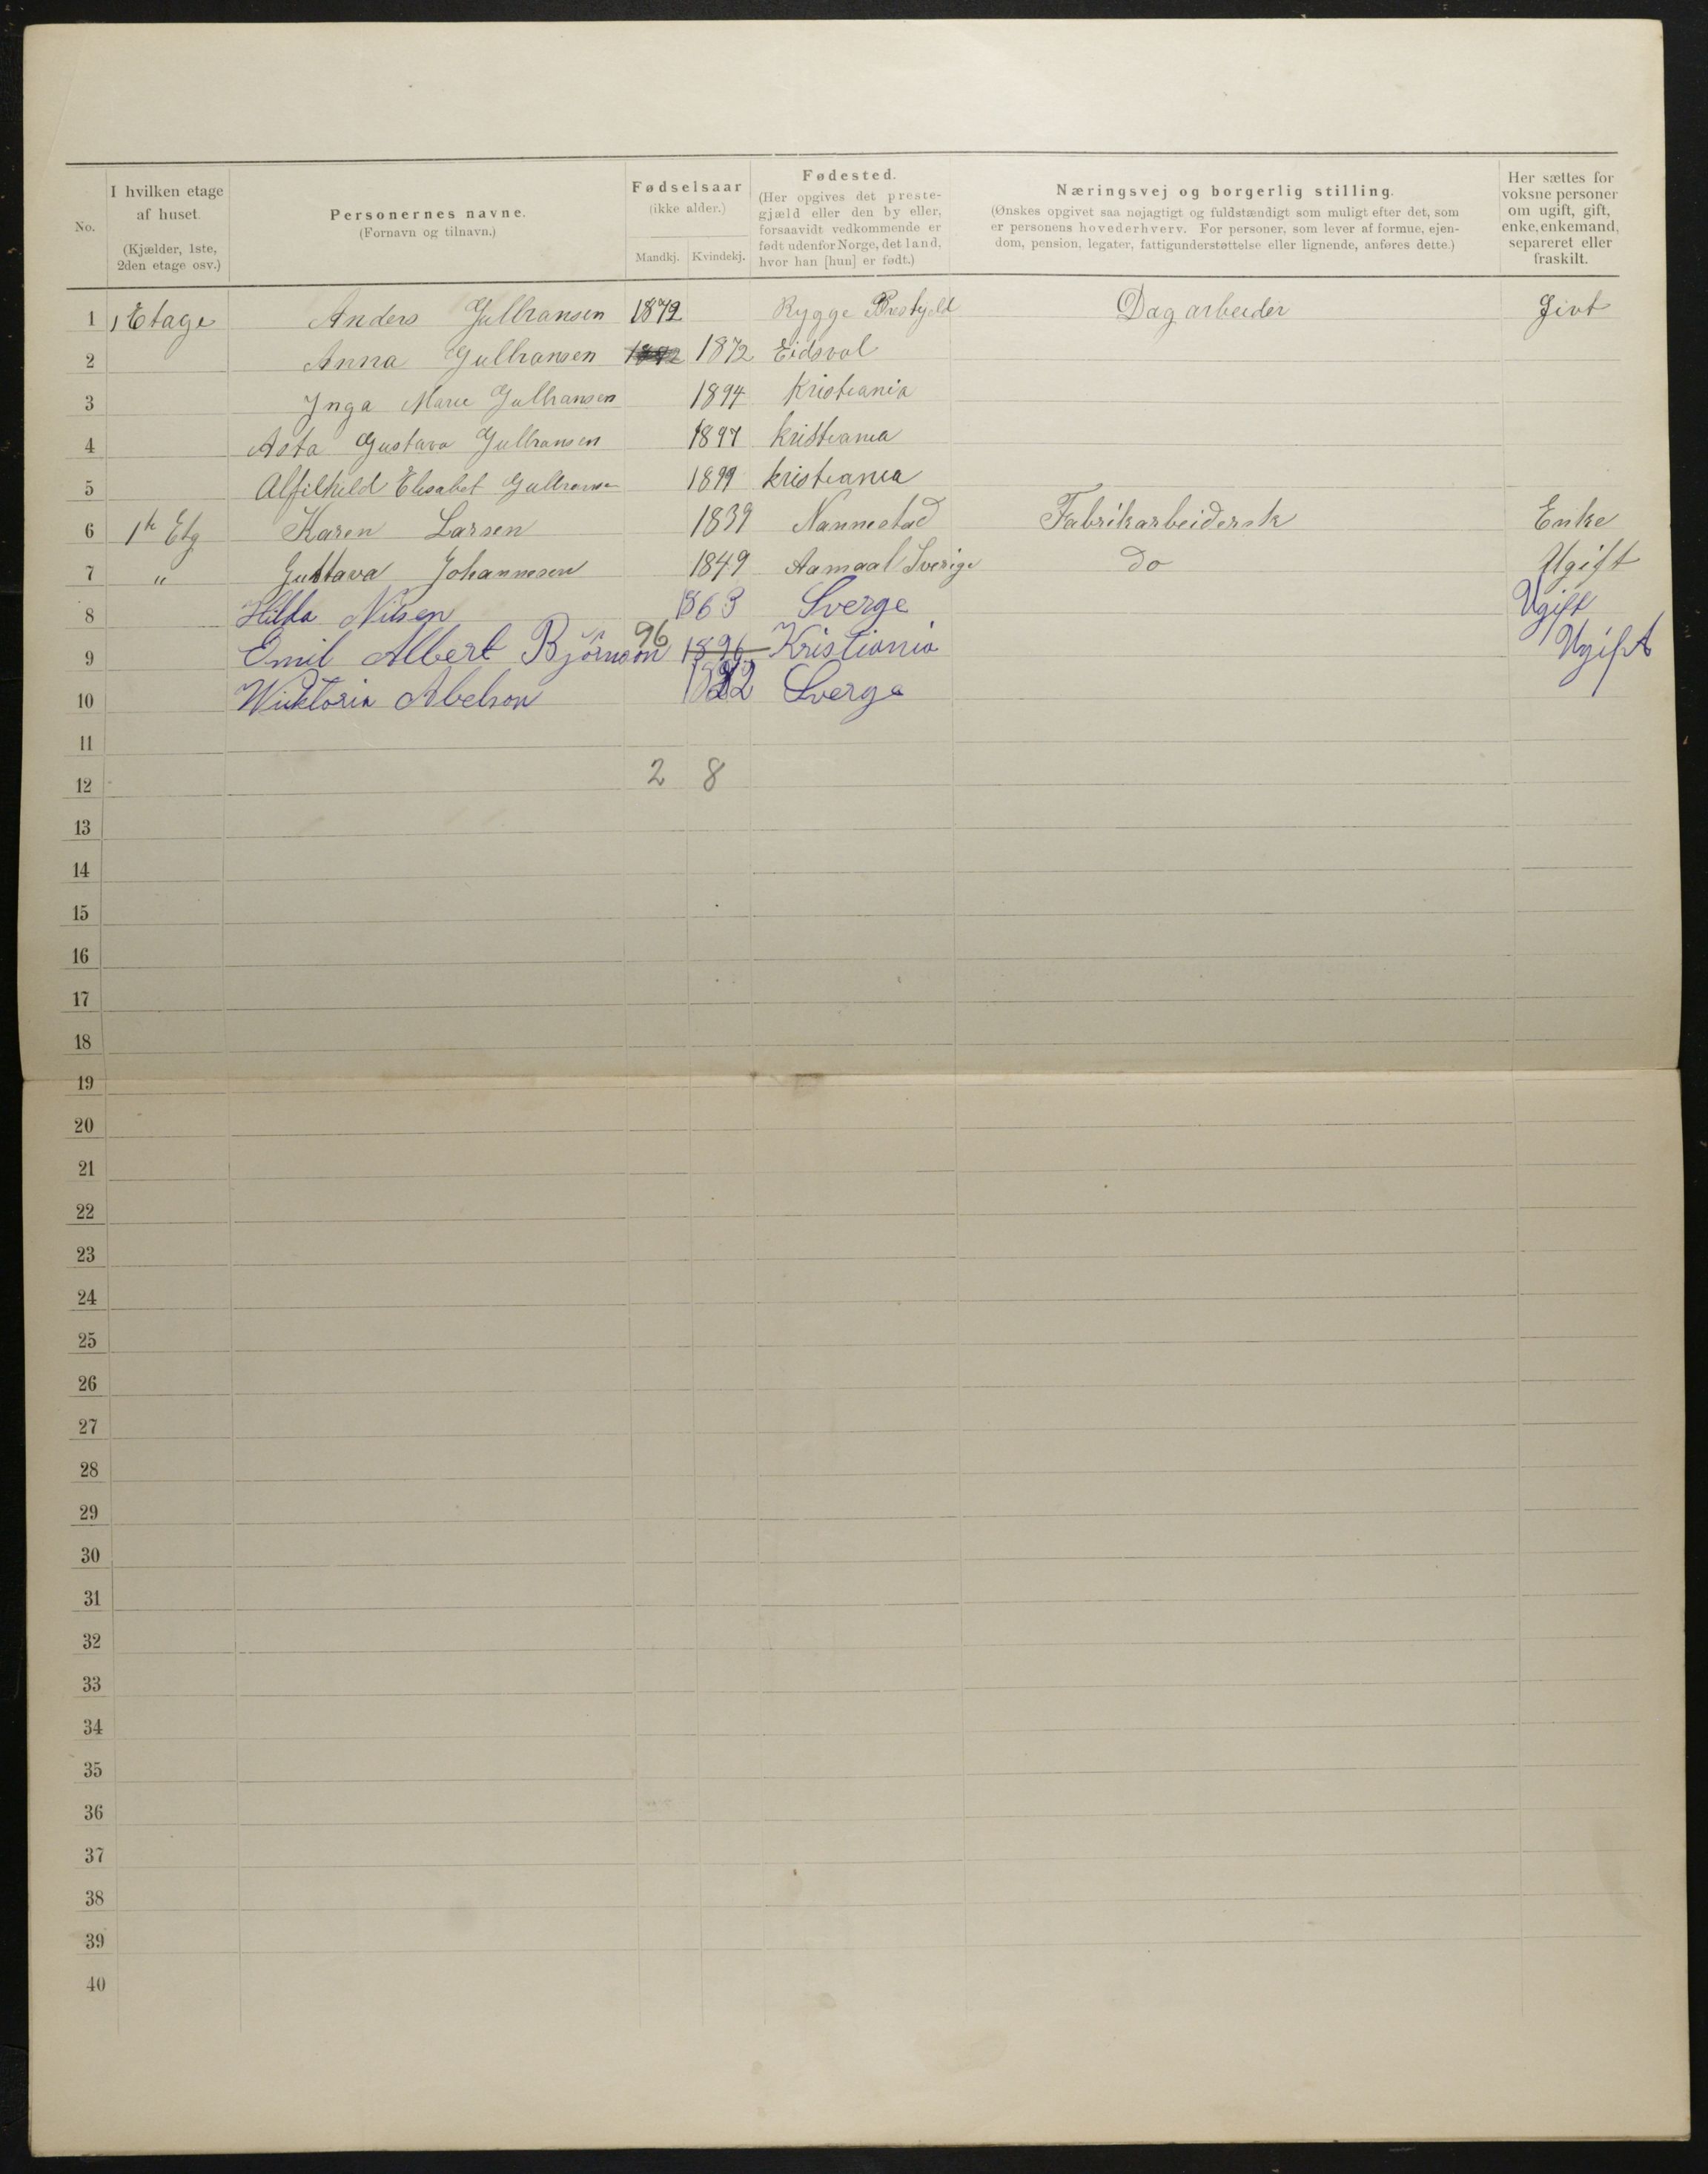 No.
I hvilken etage af huset. (Kjælder, 1ste, 2den etage osv.)
Personernes navne. (Fornavn og tilnavn.)
Fødselsaar (ikke alder.) Mandkj. Kvindekj.
Fødested. (Her opgives det prestegjæld eller den by eller, forsaavidt vedkommende er født udenfor Norge, det land, hvor han [hun] er født.)
Næringsvej og borgerlig stilling. (Ønskes opgivet saa nøjagtigt og fuldstændigt som muligt efter det, som er personens hovederhverv. For personer, som lever af formue, ejendom, pension, legater, fattigunderstøttelse eller lignende, anføres dette.)
Her sættes for voksne personer om ugift, gift, enke, enkemand, separeret eller fraskilt.
1 1 Etage Anders Gulbransen 1872 Rygge Dagarbeider Givt
2 Anna Gulbransen 1872 Eidsvol
3 Inga Marie Gulbransen 1894 Kristiania
4 Asta Gustava Gulbransen 1897 Kristiania
5 Alfilhild Elisabet Gulbransen 1899 Kristiania
6 1ste Etg Karen Larsen 1839 Nannestad Fabrikarbeiderske Enke
7 " Gustava Johannesen 1849 Aamaal Sverige Do Ugift
8 Hilda Nilsen 1863 Sverge Ugift
9 Emil Albert Björnson 96 1896 Kristiania Ugift
10 Wicktoria Abelson Sverge
11
12 2 8
13
14
15
16
17
18
19
20
21
22
23
24
25
26
27
28
29
30
31
32
33
34
35
36
37
38
39
40